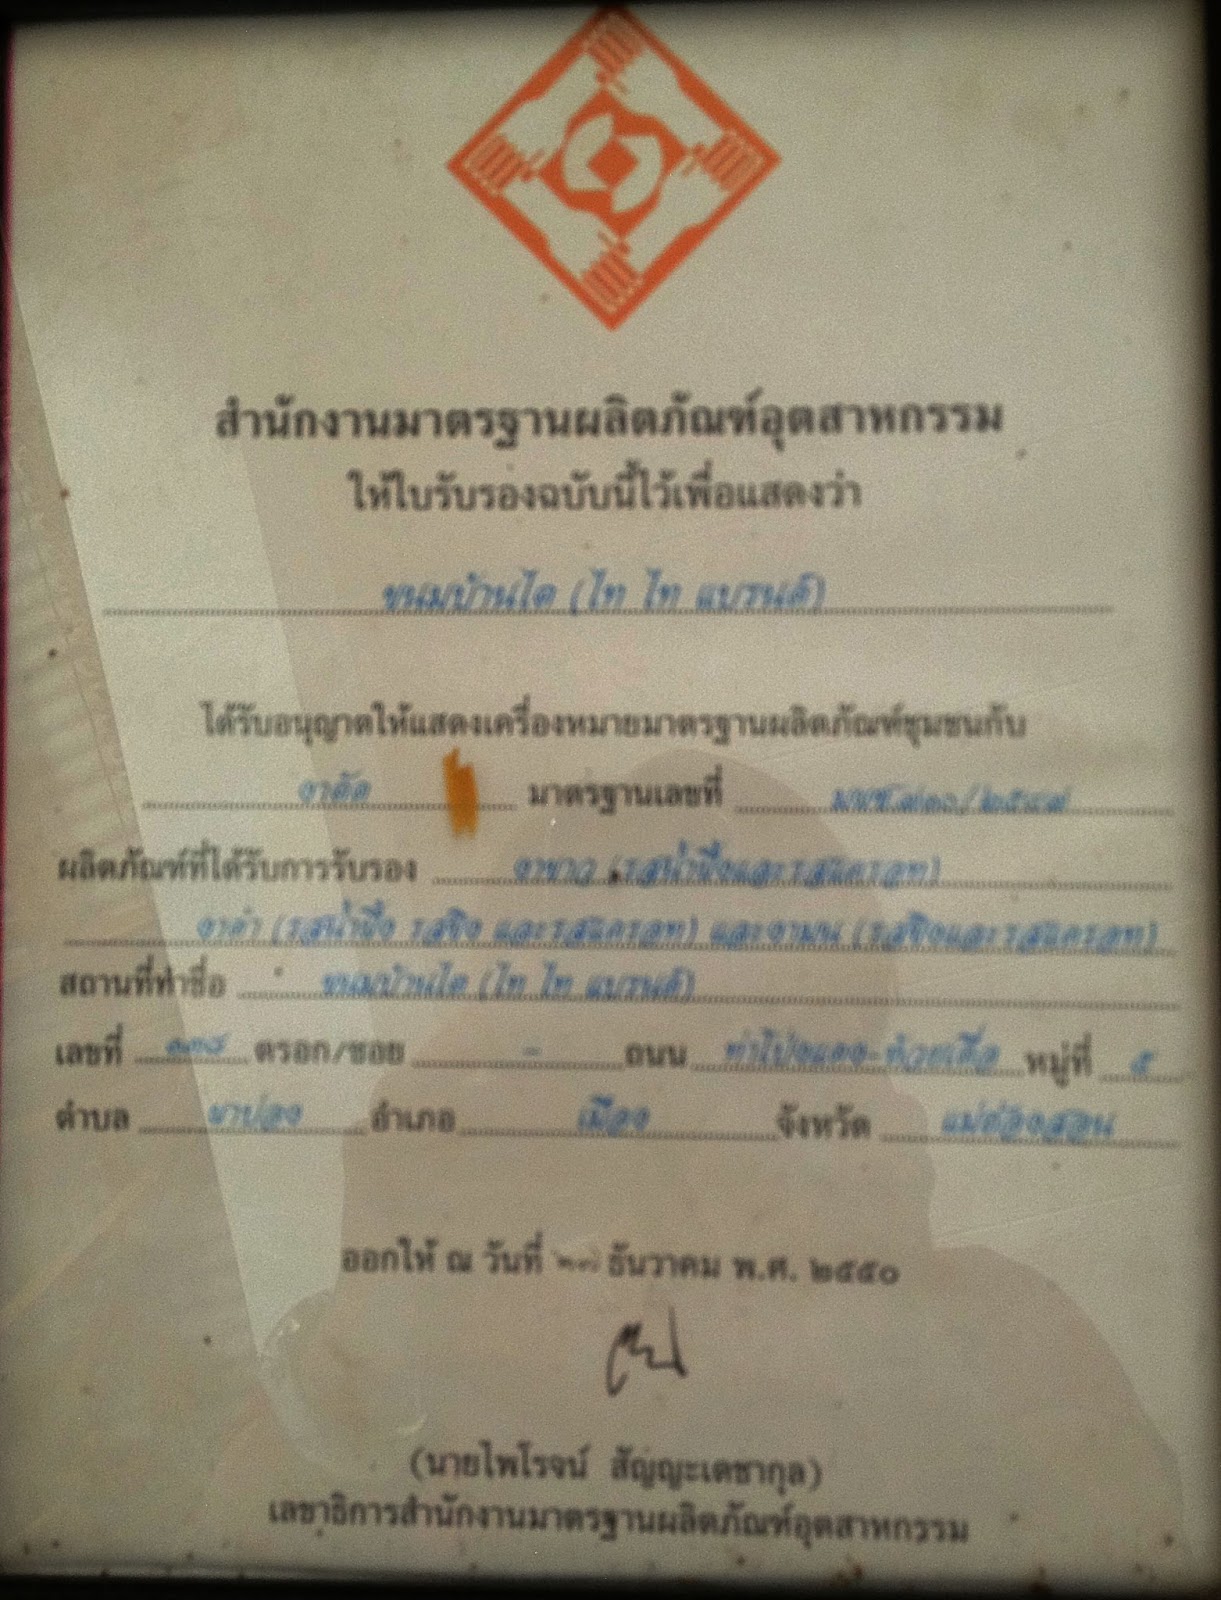 สำนักงานมาตรฐานผลิตภัณฑ์อุตสาหกรรม
ให้ใบรับรองฉบับนี้ไว้เพื่อแสดงว่า
ขนมบ้านไต (ไท ไท แบรนด์)
ได้รับอนุญาตให้แสดงเครื่องหมายมาตรฐานผลิตภัณฑ์ชุมชนกับ
งาตัด มาตรฐานเลขที่
ผลิตภัณฑ์ที่ได้รับการรับรอง งาขาว (รสน้ำผึ้งและรสแครอท)
งาดำ (รสน้ำผึ้ง รสขิง และรสแครอท) และงามน (รสขิงและรสแครอท)
สถานที่ทำชื่อ ขนมบ้านไต (ไท ไท แบรนด์)
เลขที่ ๑๓๘ ตรอก/ซอย - ถนน ท่าโป่งแดง-ห้วยเดื่อ หมู่ที่ ๕
ตำบล ผาบ่อง อำเภอ เมือง จังหวัด แม่ฮ่องสอน
ออกให้ ณ วันที่ ๒๗ ธันวาคม พ.ศ. ๒๕๕๐
(นายไพโรจน์ สัญญะเดชากุล)
เลขาธิการสำนักงานมาตรฐานผลิตภัณฑ์อุตสาหกรรม